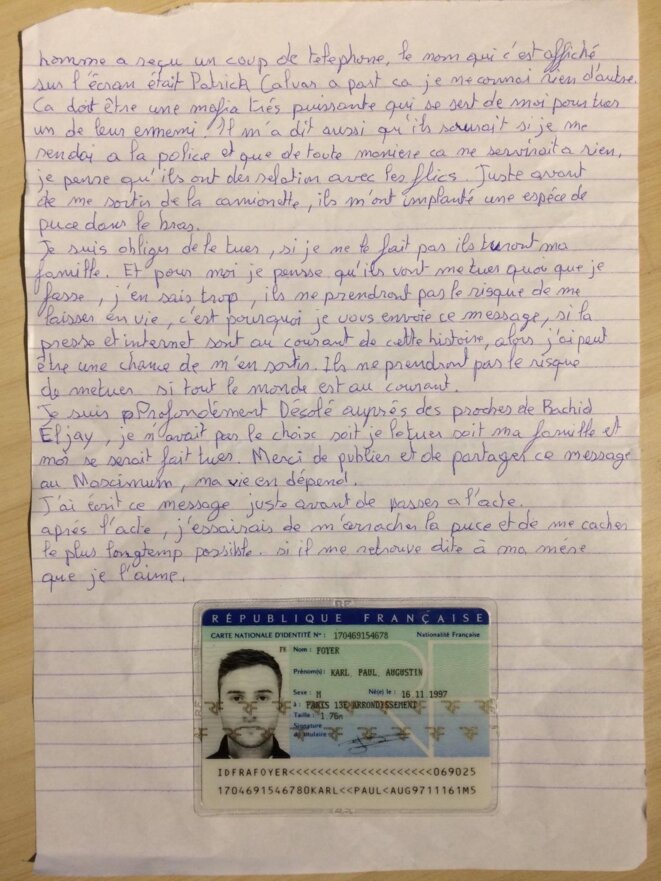 homme a reçu un coup de telephone, le nom qui c'est affiché
sur l'écran était Patrick Calvar a part ca je ne connai rien d'autre.
Ca doit être une mafia très puissante qui se sert de moi pour tuer
un de leur ennemi. Il m'a dit aussi qu'ils sauraît si je me
rendai a la police et que de toute maniere ca ne servirait a rien,
je pense qu'ils ont des relation avec les flics. Juste avant
de me sortir de la camionette, ils m'ont implanté une espéce de
puce dans le bras.
Je suis obliger de le tuer, si je ne le fait pas ils tueront ma
famille. Et pour moi je pensse qu'ils vont me tuer quoi que je
fasse, j'en sais trop, ils ne prendront pas le risque de me
laisser en vie, c'est pourquoi je vous envoie ce message, si la
presse et internet sont au courant de cette histoire, alors j'ai peut
être une chance de m'en sortir. Ils ne prendront pas le risque
de me tuer si tout le monde est au courant.
Je suis Profondément Désolé auprés des proches de Rachid
Eljay, je n'avait pas le choix soit je le tuer soit ma famille et
moi se serait fait tuer. Merci de publier et de partager ce message
au Maximum, ma vie en dépend.
J'ai écrit ce message juste avant de passer a l'acte.
aprés l'acte, j'essairais de m'arracher la puce et de me cacher
le plus longtemp possible. si il me retrouve dite à ma mére
que je l'aime.
RÉPUBLIQUE FRANÇAISE
CARTE NATIONALE D'IDENTITÉ N° : 170469154678 Nationalité Française
Nom : FOYER
Prénom(s) : KARL PAUL AUGUSTIN
Sexe : M Né(e) le : 16 11 1997
à : PARIS 13E ARRONDISSEMENT
Taille : 1.76m
Signature
du titulaire :
IDFRAFOYER<<<<<<<<<<<<<<<<<<<<069025
1704691546780KARL<<PAUL<AUG9711161M5